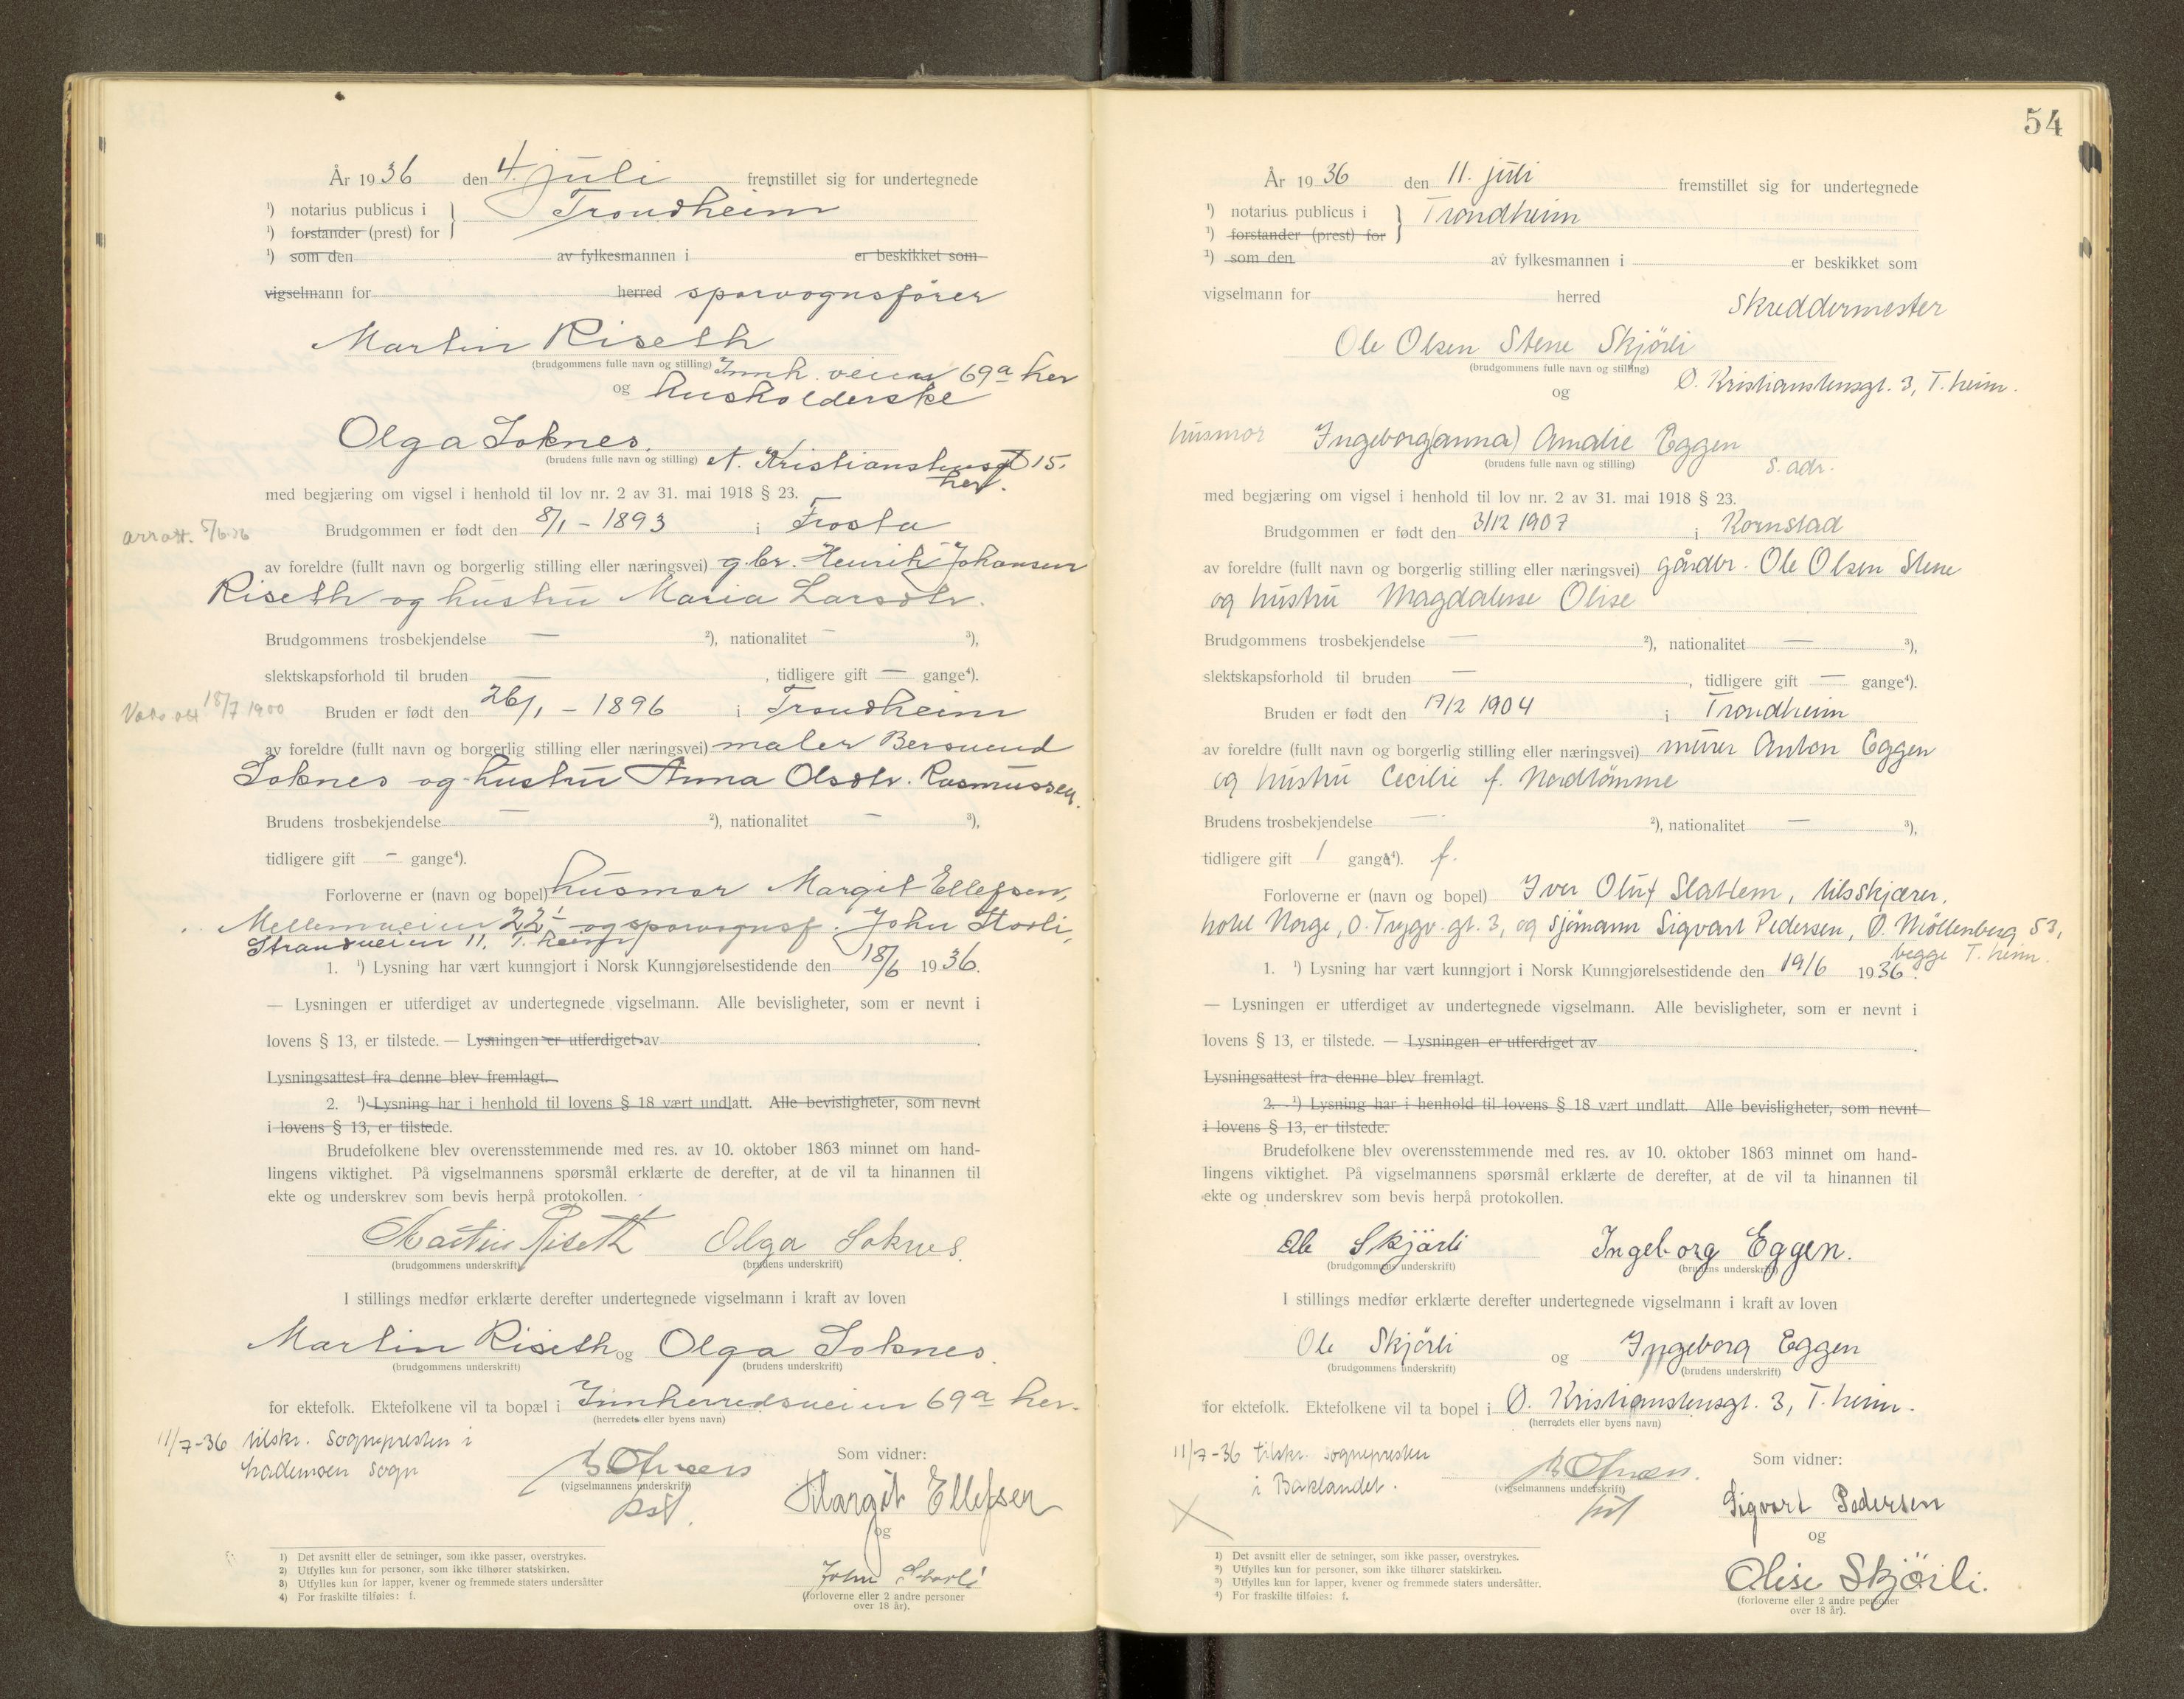 År 1936 den 4. juli fremstillet sig for undertegnede
¹) notarius publicus i } Trondheim
¹) forstander (prest) for
¹) som den av fylkesmannen i er beskikket som
vigselmann for herred sporvognsfører
Martin Riseth
(brudgommens fulle navn og stilling) Innh. veien 69a her
og husholderske
Olga Soknes.
(brudens fulle navn og stilling) N. Kristianstensgt 15.
her.
med begjæring om vigsel i henhold til lov nr. 2 av 31. mai 1918 § 23.
Brudgommen er født den 8/1 - 1893 i Frosta
5/6-36
av foreldre (fullt navn og borgerlig stilling eller næringsvei) g.br. Henrik Johansen
Riseth og hustru Maria Larsdtr.
Brudgommens trosbekjendelse — ²), nationalitet — ³),
slektskapsforhold til bruden — , tidligere gift — gange⁴).
18/7 1900
Bruden er født den 26/1 - 1896 i Trondheim
av foreldre (fullt navn og borgerlig stilling eller næringsvei) maler Bersvend
Soknes og hustru Anna Olsdtr. Rasmussen.
Brudens trosbekjendelse — ²), nationalitet — ³),
tidligere gift — gange⁴).
Forloverne er (navn og bopel) husmor Margit Ellefsen,
Mellemveien 22 og sporvognsf. John Storli,
Strandveien 11, T.heim
1. ¹) Lysning har vært kunngjort i Norsk Kunngjørelsestidende den 18/6 1936.
— Lysningen er utferdiget av undertegnede vigselmann. Alle bevisligheter, som er nevnt i
lovens § 13, er tilstede. — Lysningen er utferdiget av .
Lysningsattest fra denne blev fremlagt.
2. ¹) Lysning har i henhold til lovens § 18 vært undlatt. Alle bevisligheter, som nevnt
i lovens § 13, er tilstede.
Brudefolkene blev overensstemmende med res. av 10. oktober 1863 minnet om hand-
lingens viktighet. På vigselmannens spørsmål erklærte de derefter, at de vil ta hinannen til
ekte og underskrev som bevis herpå protokollen.
Martin Riseth Olga Soknes.
(brudgommens underskrift) (brudens underskrift)
I stillings medfør erklærte derefter undertegnede vigselmann i kraft av loven
Martin Riseth og Olga Soknes.
(brudgommens underskrift) (brudens underskrift)
for ektefolk. Ektefolkene vil ta bopæl i Innherredsveien 69a her.
(herredets eller byens navn)
11/7-36 tilskr. Sognepresten i
Lademoen sogn
(vigselmannens underskrift)
Som vidner:
Margit Ellefsen
og
John Storli
(forloverne eller 2 andre personer
over 18 år).
1) Det avsnitt eller de setninger, som ikke passer, overstrykes.
2) Utfylles kun for personer, som ikke tilhører statskirken.
3) Utfylles kun for lapper, kvener og fremmede staters undersåtter
4) For fraskilte tilføies: f.
54
År 1936 den 11. juli fremstillet sig for undertegnede
¹) notarius publicus i } Trondheim
¹) forstander (prest) for
¹) som den av fylkesmannen i er beskikket som
vigselmann for herred
Skreddermester
Ole Olsen Stene Skjörli
(brudgommens fulle navn og stilling)
og Ø. Kristianstensgt. 3, T.heim.
husmor Ingeborg (Anna) Amalie Eggen
(brudens fulle navn og stilling) s. adr.
med begjæring om vigsel i henhold til lov nr. 2 av 31. mai 1918 § 23.
Brudgommen er født den 3/12 1907 i Kornstad
av foreldre (fullt navn og borgerlig stilling eller næringsvei) gårdbr. Ole Olsen Stene
og hustru Magdalene Olise
Brudgommens trosbekjendelse — ²), nationalitet — ³),
slektskapsforhold til bruden — , tidligere gift — gange⁴).
Bruden er født den 17/2 1904 i Trondheim
av foreldre (fullt navn og borgerlig stilling eller næringsvei) murer Anton Eggen
og hustru Cecilie f. Nordtömme
Brudens trosbekjendelse — ²), nationalitet — ³),
tidligere gift 1 gange⁴). f.
Forloverne er (navn og bopel) Iver Oluf Slattem, tilskjærer,
hotel Norge, O. Trygv. gt. 3, og sjömann Sigvart Pedersen, Ø. Möllenberg 53,
begge T.heim.
1. ¹) Lysning har vært kunngjort i Norsk Kunngjørelsestidende den 19/6 1936.
— Lysningen er utferdiget av undertegnede vigselmann. Alle bevisligheter, som er nevnt i
lovens § 13, er tilstede. — Lysningen er utferdiget av .
Lysningsattest fra denne blev fremlagt.
2. ¹) Lysning har i henhold til lovens § 18 vært undlatt. Alle bevisligheter, som nevnt
i lovens § 13, er tilstede.
Brudefolkene blev overensstemmende med res. av 10. oktober 1863 minnet om hand-
lingens viktighet. På vigselmannens spørsmål erklærte de derefter, at de vil ta hinannen til
ekte og underskrev som bevis herpå protokollen.
Ole Skjörli Ingeborg Eggen.
(brudgommens underskrift) (brudens underskrift)
I stillings medfør erklærte derefter undertegnede vigselmann i kraft av loven
Ole Skjörli og Ingeborg Eggen
(brudgommens underskrift) (brudens underskrift)
for ektefolk. Ektefolkene vil ta bopel i Ø. Kristianstensgt. 3, T.heim.
(herredets eller byens navn)
11/7-36 tilskr. sognepresten
i Baklandet.
(vigselmannens underskrift)
Som vidner:
Sigvart Pedersen
og
Olise Skjörli.
(forloverne eller 2 andre personer
over 18 år).
1) Det avsnitt eller de setninger, som ikke passer, overstrykes.
2) Utfylles kun for personer, som ikke tilhører statskirken.
3) Utfylles kun for lapper, kvener og fremmede staters undersåtter.
4) For fraskilte tilføies: f.